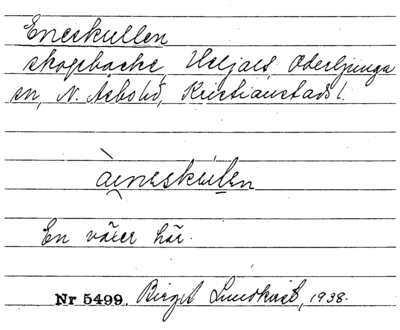 Eneskullen
skogsbacke, Heljalt, Oderljunga
sn, N. Åsbohd, Kristianstads l.
àineskúlen
En växer här.
Nr 5499. Birgit Lundkvist, 1938.